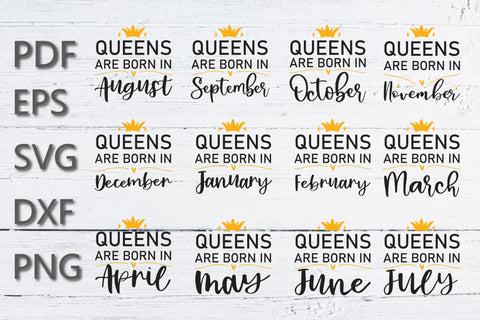 PDF
EPS
SVG
DXF
PNG
QUEENS
ARE BORN IN
August
QUEENS
ARE BORN IN
September
QUEENS
ARE BORN IN
October
QUEENS
ARE BORN IN
November
QUEENS
ARE BORN IN
December
QUEENS
ARE BORN IN
January
QUEENS
ARE BORN IN
February
QUEENS
ARE BORN IN
March
QUEENS
ARE BORN IN
April
QUEENS
ARE BORN IN
may
QUEENS
ARE BORN IN
June
QUEENS
ARE BORN IN
July